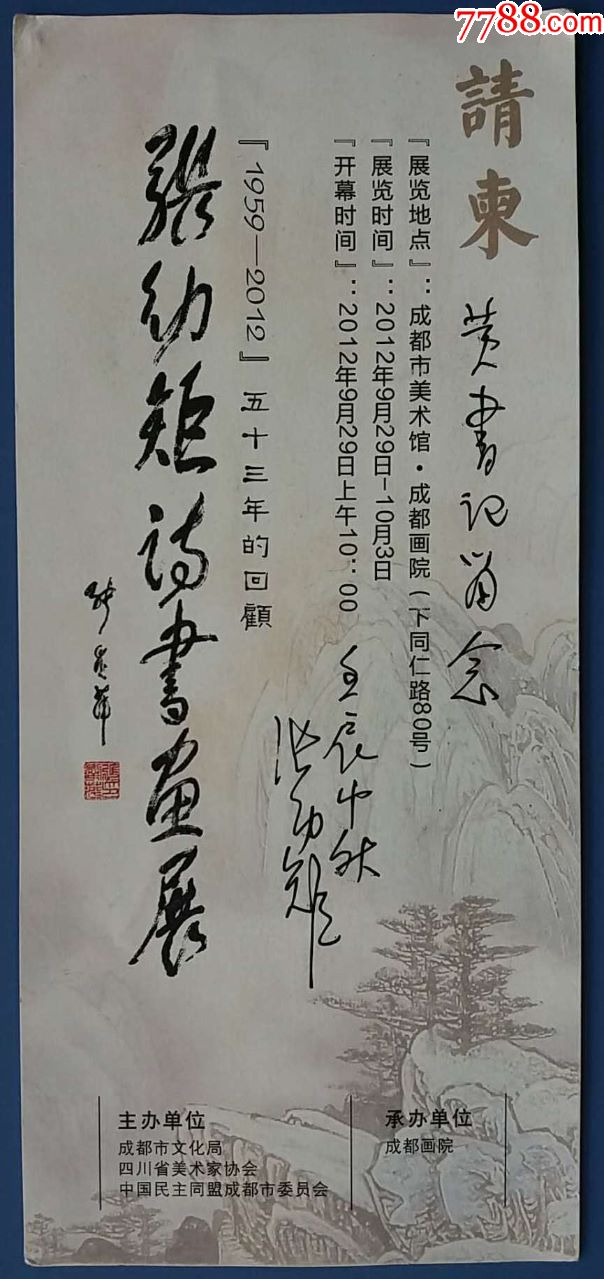 7788.com
請柬
黄書记留念
『展览地点』：成都市美术馆·成都画院（下同仁路80号）
『展览时间』：2012年9月29日-10月3日
『开幕时间』：2012年9月29日上午10：00
壬辰中秋
张幼矩
『1959—2012』五十三年的回顧
張幼矩诗書画展
主办单位
成都市文化局
四川省美术家协会
中国民主同盟成都市委员会
承办单位
成都画院